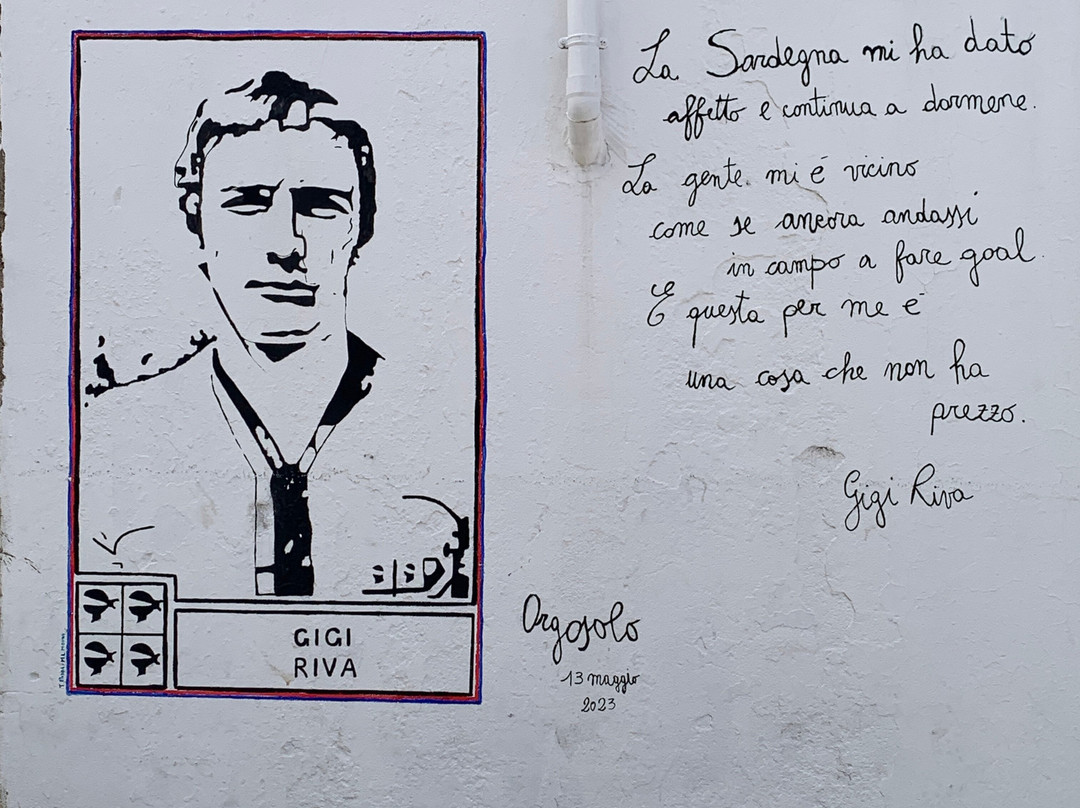 La Sardegna mi ha dato
affetto e continua a darmene.
La gente mi é vicino
come se ancora andassi
in campo a fare goal.
E questa per me é
una cosa che non ha
prezzo.
Gigi Riva
GIGI
RIVA
Orgosolo
13 maggio
2023